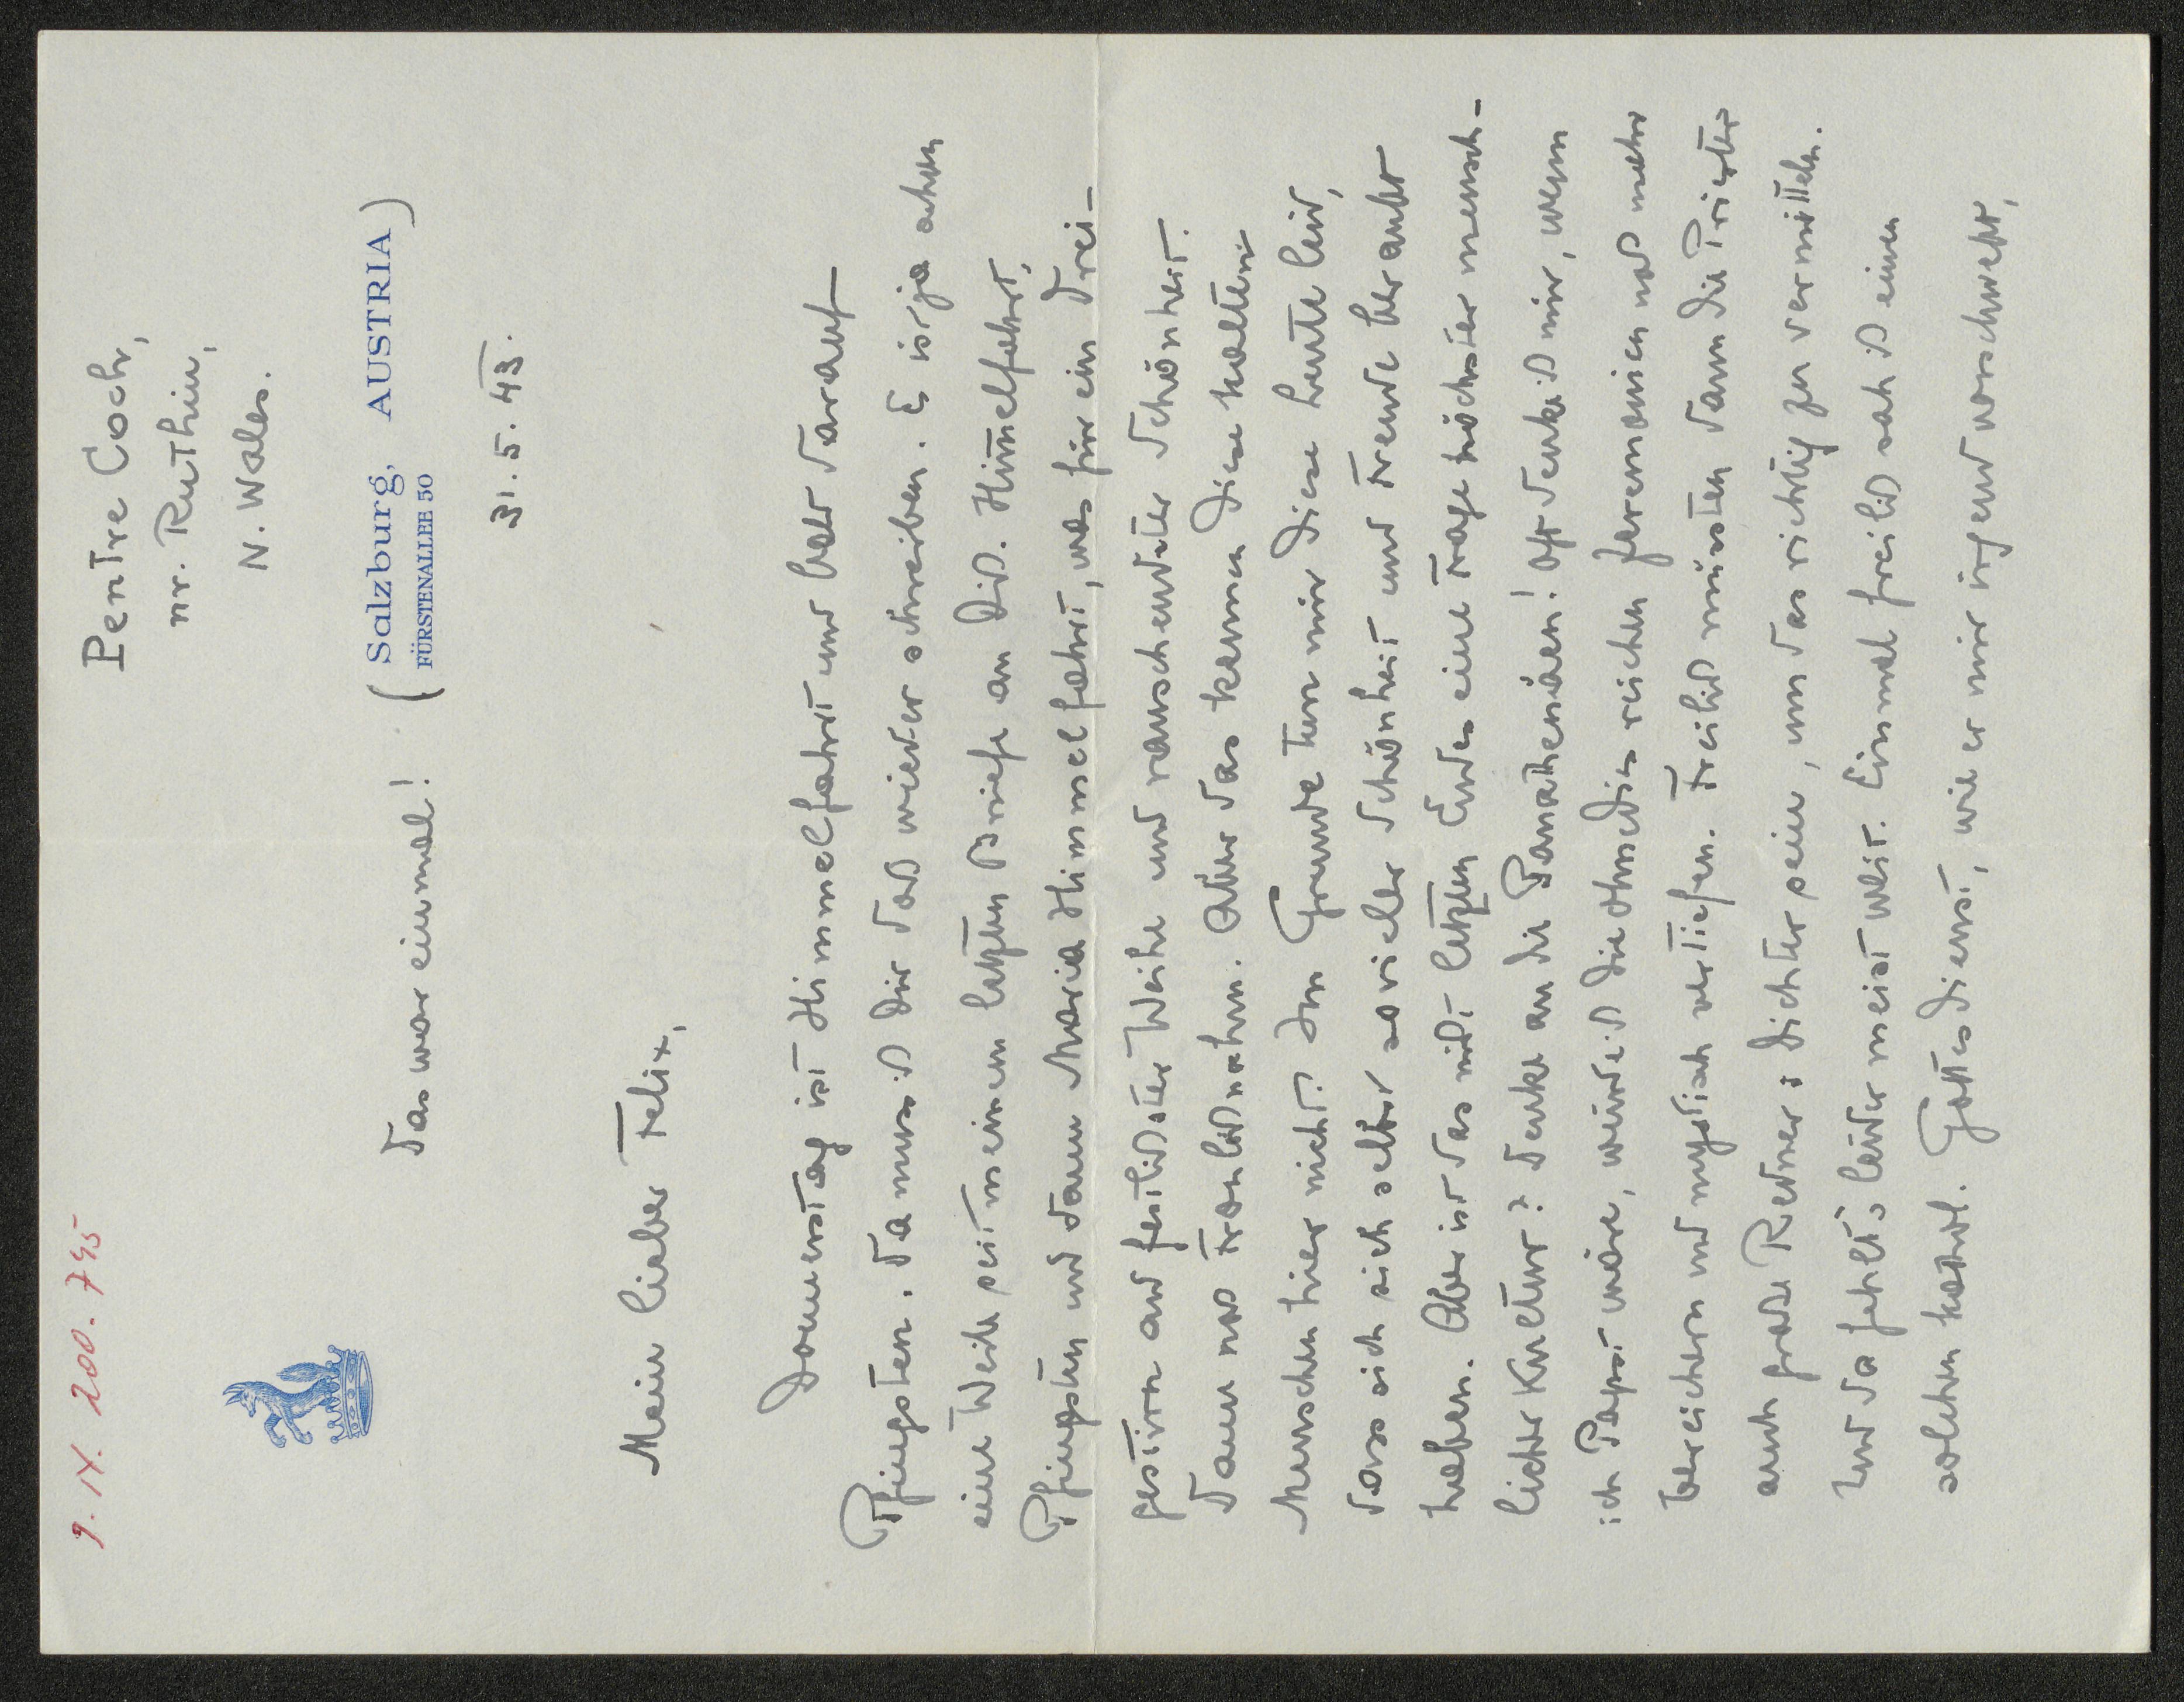 9. IX. 200. 795
Pentre Coch,
nr. Ruthin,
N. Wales.
das war einmal! (Salzburg, AUSTRIA)
FÜRSTENALLEE 50
31.5.43.
Mein lieber Felix,
Donnerstag ist Himmelfahrt und bald darauf
Pfingsten. Da muss ich Dir doch wieder schreiben. Es ist ja schon
eine Weile seit meinem letzten Briefe an Dich. Himmelfahrt,
Pfingsten und dann Maria Himmelfahrt, was für ein Drei-
gestirn an festlichster Weihe und rauschendster Schönheit.
Dann noch Frohnleichnahm. Aber das kennen diese kalten
Menschen hier nicht. Im Grunde tun mir diese Leute leid,
dass sich sich selber so vieler Schönheit und Freude beraubt
haben. Aber ist das nicht letzten Endes eine Frage höchster mensch-
licher Kultur? Denke an die Panathenäen! Oft denke ich mir, wenn
ich Papst wäre, würde ich die ohnedies reichen Zeremonien noch mehr
bereichern und mystisch vertiefen. Freilich müssten dann die Priester
auch große Redner & Dichter sein, um das richtig zu vermitteln.
Und da fehlt's leider meist weit. Einmal freilich sah ich einen
solchen Gottesdienst, wie er mir irgend vorschwebt,